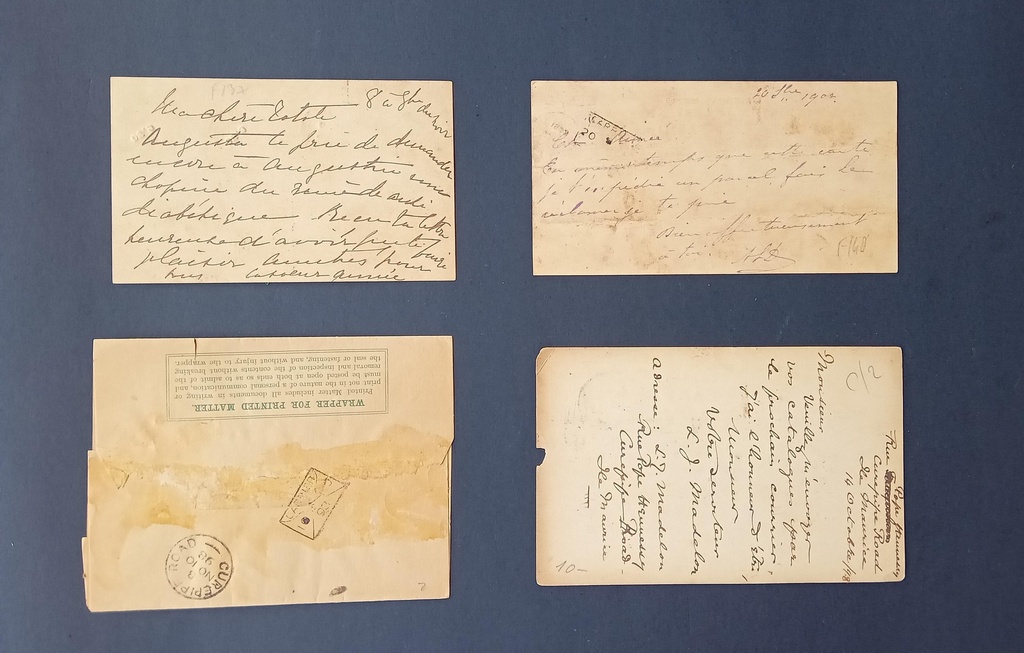 F132
8 à 9h du soir
Ma chère Totote
Augusta te prie de demander
encore à Augustin une
chopine du remède anti
diabétique. Reçu ta lettre
heureuse d'avoir pu te faire
plaisir amitiés pour
tous ta soeur Aimée
20 1902
Aimé
En même temps que cette carte
je t'expédie un parcel fais le
réclamer je te prie
Bien affectueusement
à toi
F140
WRAPPER FOR PRINTED MATTER.
Printed Matter includes all documents in writing or
print not in the nature of a personal communication, and
must be posted open at both ends so as to admit of the
removal and inspection of the contents without breaking
the seal or fastening, and without injury to the wrapper.
CUREPIPE ROAD
3
NO 10
98
2
C/2
Rue Pope Hennessy
Curepipe Road
Ile Maurice
14 Octobre/98
Monsieur
Veuillez m'envoyer
vos catalogues par
le prochain courrier,
J'ai l'honneur d'être,
Monsieur
Votre Serviteur
L. J. Madelon
Adresse: L. J. Madelon
Rue Pope Hennessy
Curepipe Road
Ile Maurice
10-